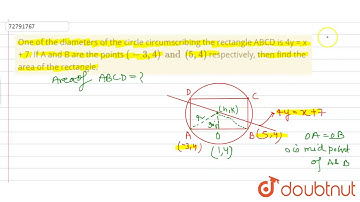 72791767
One of the diameters of the circle circumscribing the rectangle ABCD is 4y = x
+ 7. If A and B are the points (− 3, 4) and (5, 4) respectively, then find the
area of the rectangle.
Area of ABCD = ?
D C
(h,k)
4y = x+7
A O B (5,4)
(-3,4) (1,4)
OA = OB
O is mid point
of A&B
doubtnut